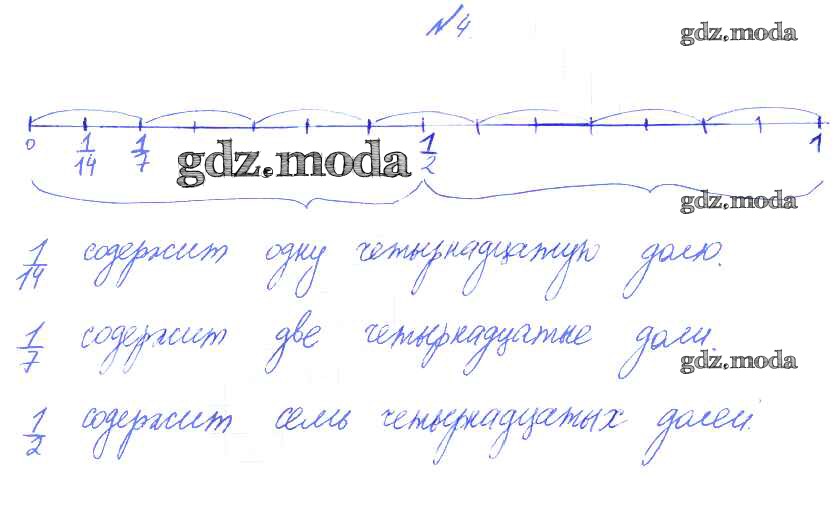 № 4
gdz.moda
0 1/14 1/7 1/2 1
gdz.moda
gdz.moda
1/14 содержит одну четырнадцатую долю.
1/7 содержит две четырнадцатые доли.
gdz.moda
1/2 содержит семь четырнадцатых долей.